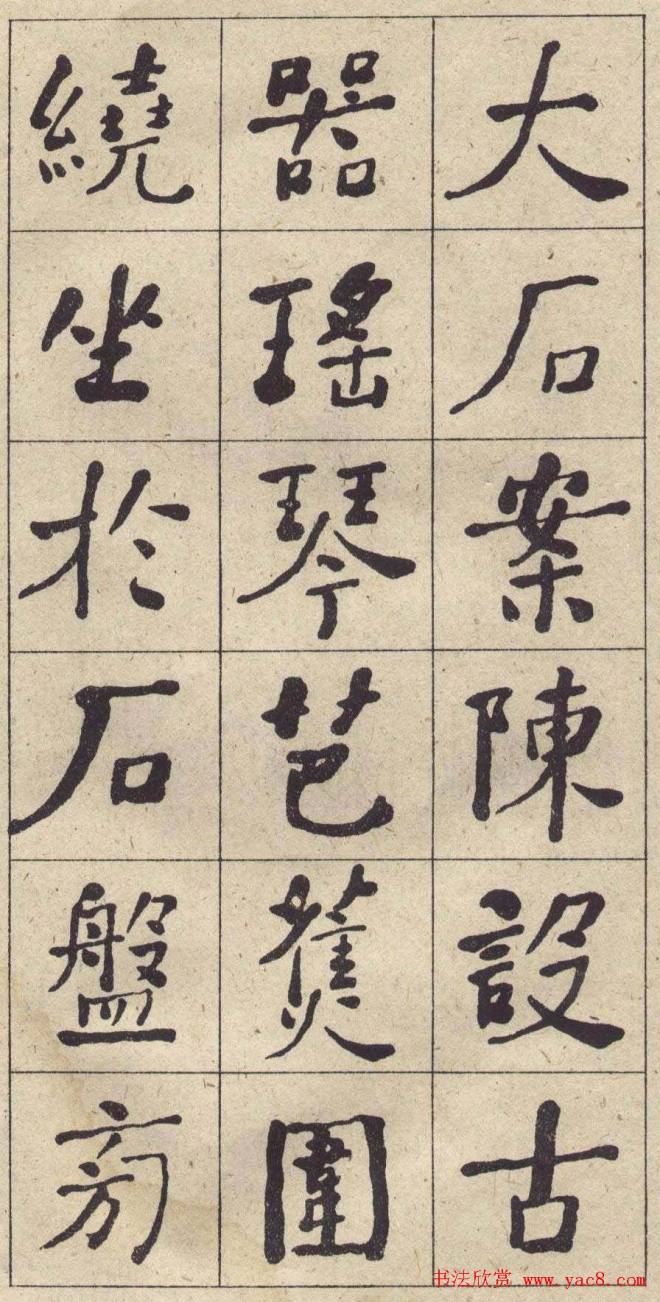 大石案陳設古
器瑤琴芭蕉圍
繞坐於石盤旁
书法欣赏 www.yac8.com